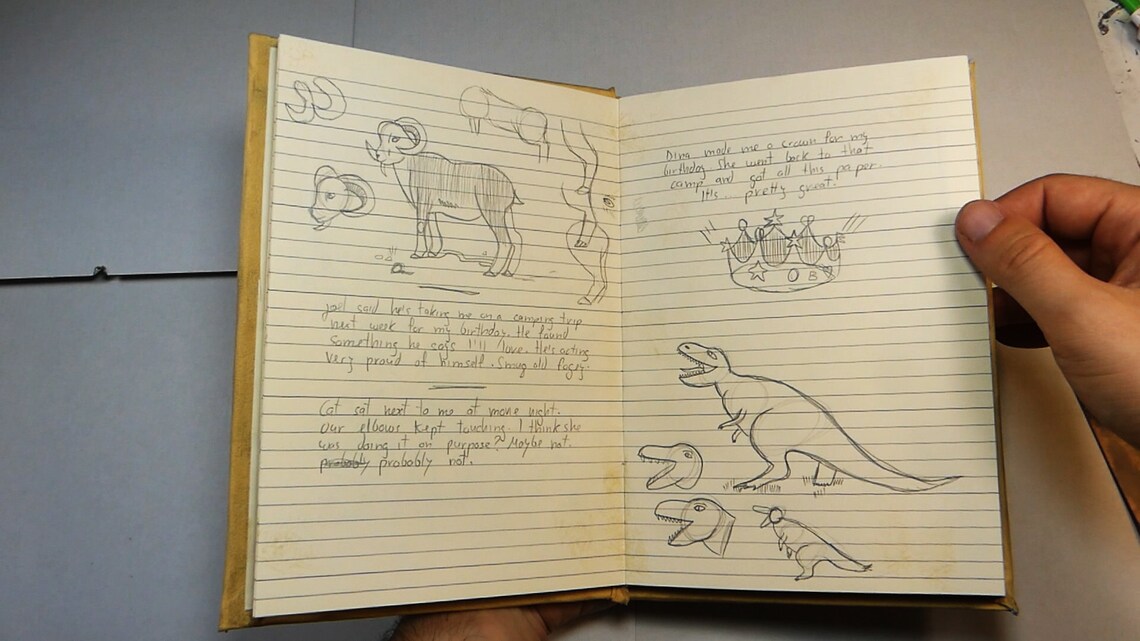 Joel said he's taking me on a camping trip
next week for my birthday. He found
something he says I'll love. He's acting
very proud of himself. Smug old fogey.
Cat sat next to me at movie night.
Our elbows kept touching. I think she
was doing it on purpose? Maybe not.
probably probobly not.
Dina made me a crown for my
birthday. She went back to that
camp and got all this paper.
It's pretty great.